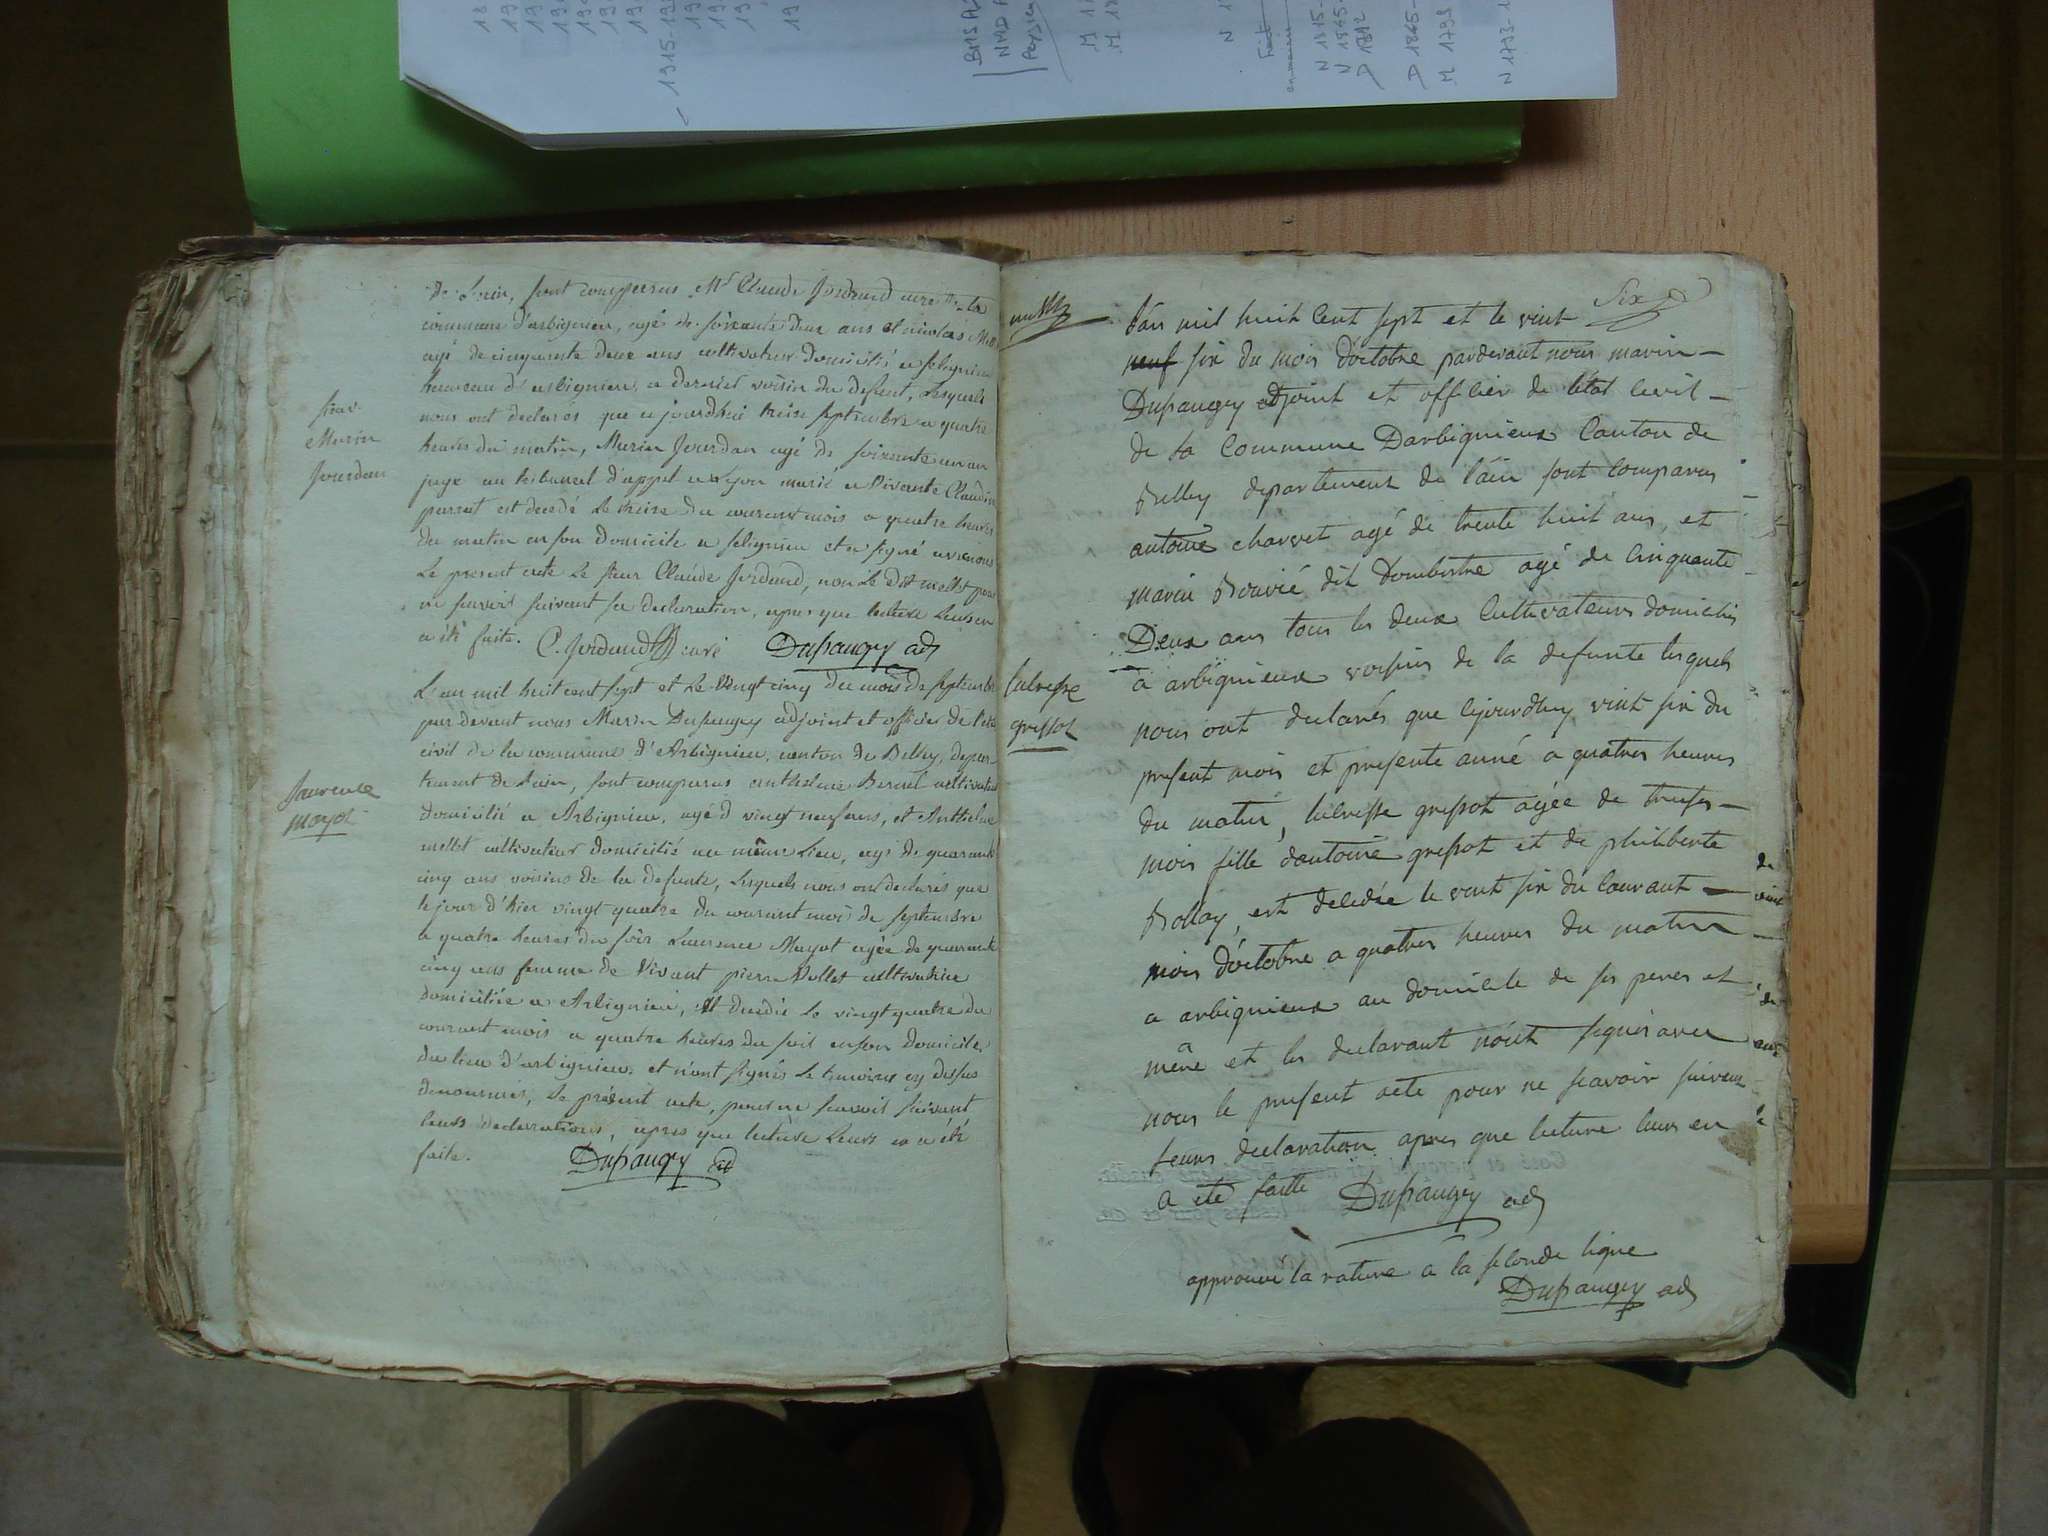 de l'ain, sont comparus Mr Claude Jordand curé de la
commune d'arbignieu, agé de soixante deux ans et nicolas Mellet
agé de cinquante deux ans cultivateur domicilié a
hameau d'arbignieu, a dernier voisin du defunt, Lesquels
nous ont declarés que cejourd'hui treize septembre a quatre
heures du matin, Marin Jourdan agé de soixante un an
juge au tribunal d'appel a Lyon marié a Vivante Claudine
est decedé le treize du courant mois a quatre heures
du matin en son domicile a et a signé avec nous
Le present acte Le sieur Claude Jordand, non Le dit mellet pour
ne savoir suivant sa declaration, apres que lecture Leur en
a été faite. C. Jordand curé Dupaugey adj
sieur
Marin
Jourdan
L'an mil huit cent sept et Le vingt cinq du mois de septembre
par devant nous Marin Dupaugey adjoint et officier de l'etat
civil de la commune d'Arbignieu, canton de Belley, depar-
tement de l'ain, sont comparus anthelme Bernel cultivateur
domicilié a Arbignieu, agé d vingt neuf ans, et Anthelme
mellet cultivateur domicilié au même Lieu, agé de quarante
cinq ans voisins de la defunte, Lesquels nous ont declarés que
le jour d'hier vingt quatre du courant mois de septembre
a quatre heures du soir Laurence Mayot agée de quarante
cinq ans femme de Vivant pierre Vollet cultivatrice
domiciliée a Arbignieu, est decedée Le vingt quatre du
courant mois a quatre heures du soir en son domicile
du lieu d'arbignieu, et n'ont signés Le temoins cy dessus
denommés, Le présent acte, pour ne savoir suivant
leurs declarations, apres que lecture Leurs en a été
faite. Dupaugey adj
Laurence
mayot
Six
L'an mil huit Cent sept et le vint
neuf six du mois d'octobre pardevant nous marin
Dupaugey adjoint et officier de l'état Civil
de la Commune Darbignieux Canton de
Belley departement de l'ain sont Comparus
antoine charvet agé de trente huit ans, et
marin Bouvié dit Dombistre agé de Cinquante
Deux ans tous les deux Cultivateurs domiciliés
à arbignieux voissins de la defunte lesquels
nous ont declarés que cejourdhuy vint six du
present mois et presente anné a quatres heures
du matin, lucresse gressot agée de treise
mois fille dantoine gressot et de philiberte
Bollay, est decedée le vint six du Courant
mois d'octobre a quatres heures du matin
a arbignieux au domicile de ses peres et
mère et les declarant n'ont signés avec
nous le present acte pour ne scavoir suivent
leurs declaration apres que lecture leurs en
a été faitte Dupaugey adj
lucresse
gressot
approuvé la rature a la seconde ligne
Dupaugey adj